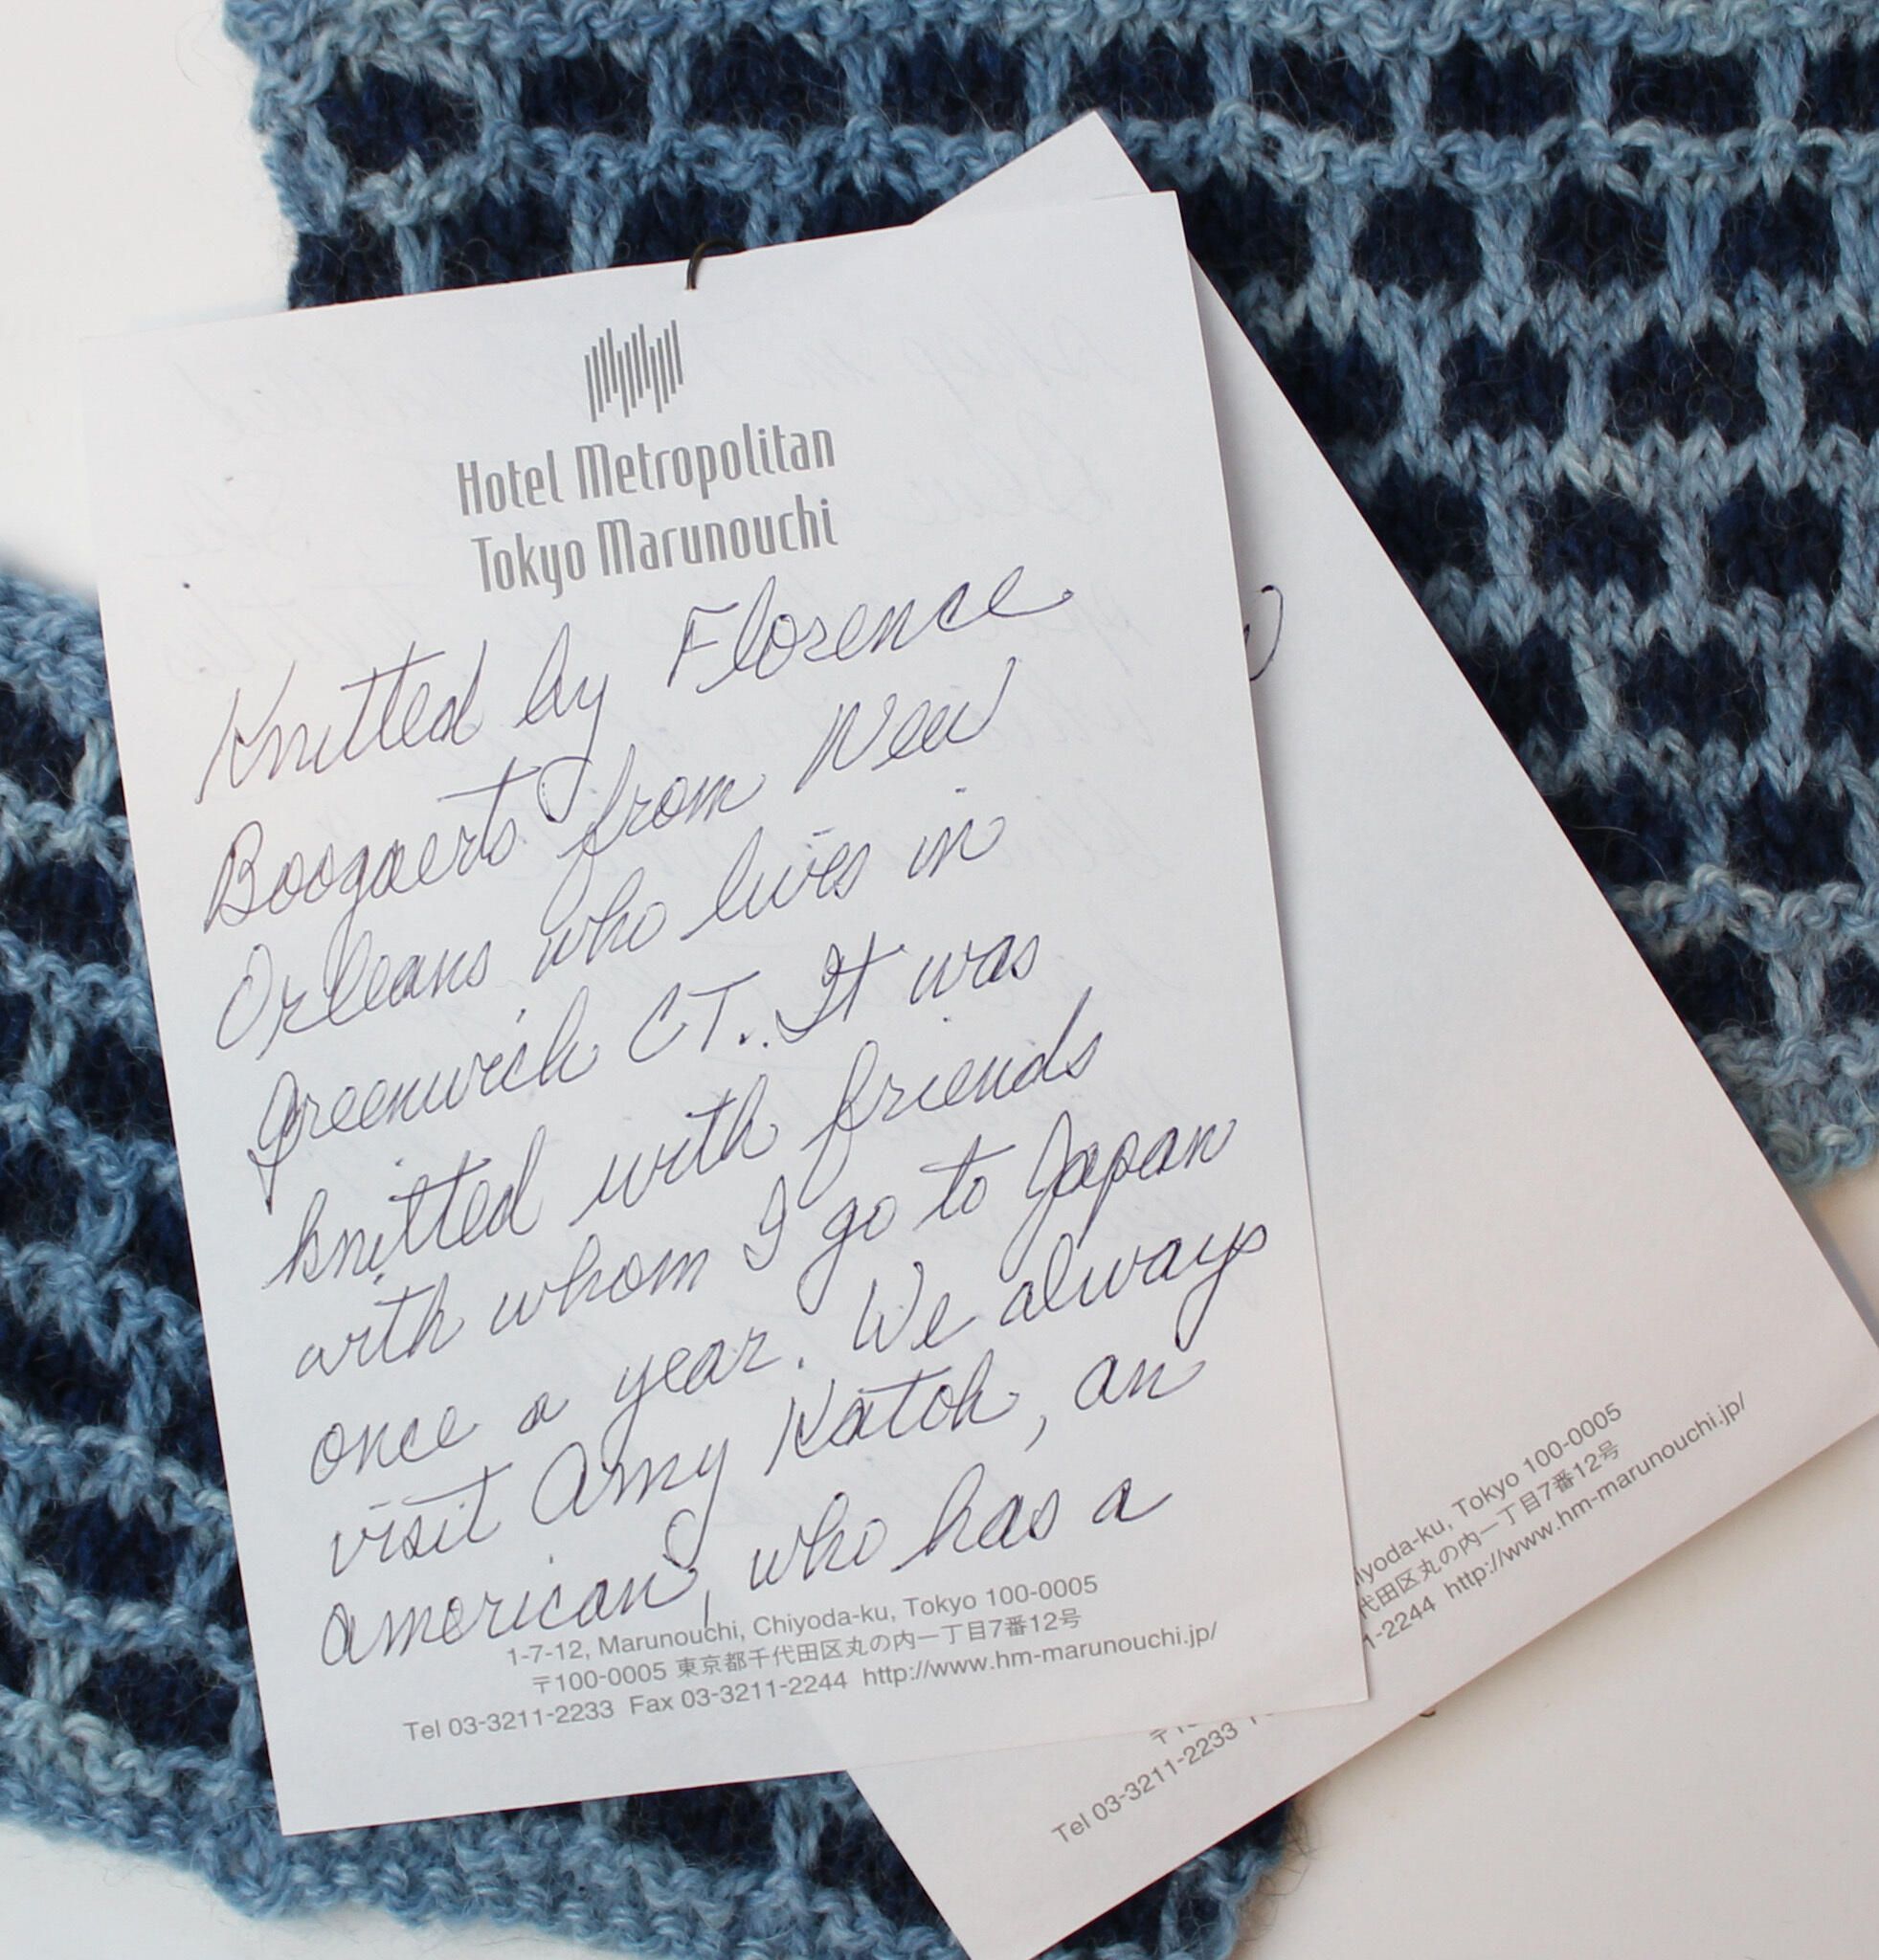 Hotel Metropolitan
Tokyo Marunouchi
Knitted by Florence
Boogaerts from New
Orleans who lives in
Greenwich CT.. It was
knitted with friends
with whom I go to Japan
once a year. We always
visit Amy Katoh, an
American, who has a
1-7-12, Marunouchi, Chiyoda-ku, Tokyo 100-0005
〒100-0005 東京都千代田区丸の内一丁目7番12号
Tel 03-3211-2233 Fax 03-3211-2244 http://www.hm-marunouchi.jp/
iyoda-ku, Tokyo 100-0005
代田区丸の内一丁目7番12号
1-2244 http://www.hm-marunouchi.jp/
Tel 03-3211-2233